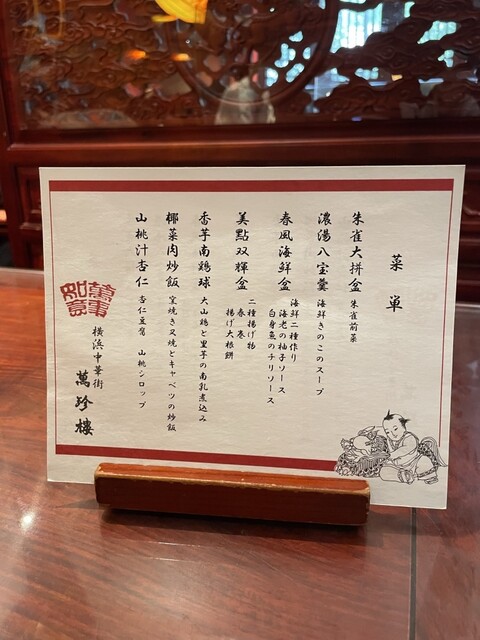 菜単
朱雀大拼盆 朱雀前菜
濃湯八宝羹 海鮮きのこのスープ
春風海鮮盒 海鮮二種作り
海老の柚子ソース
白身魚のチリソース
美點双輝盒 二種揚げ物
春巻
揚げ大根餅
香芋南鶏球 大山鶏と里芋の南乳煮込み
椰菜肉炒飯 窯焼き叉焼とキャベツの炒飯
山桃汁杏仁 杏仁豆腐 山桃シロップ
萬事如意
横浜中華街
萬珍樓